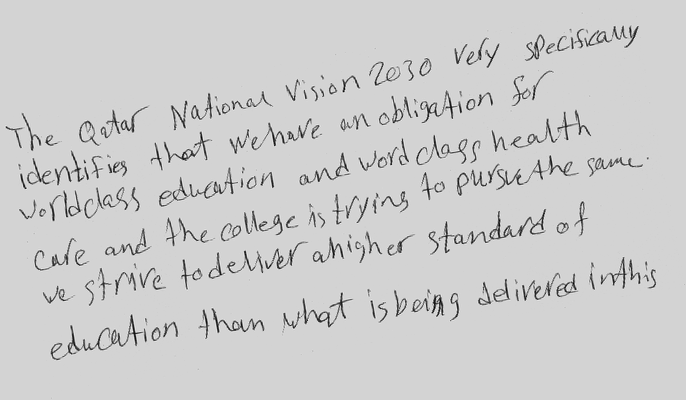 The Qatar National Vision 2030 very specifically
identifies that we have an obligation for
worldclass education and word class health
care and the college is trying to pursue the same.
we strive to deliver a higher standard of
education than what is being delivered in this